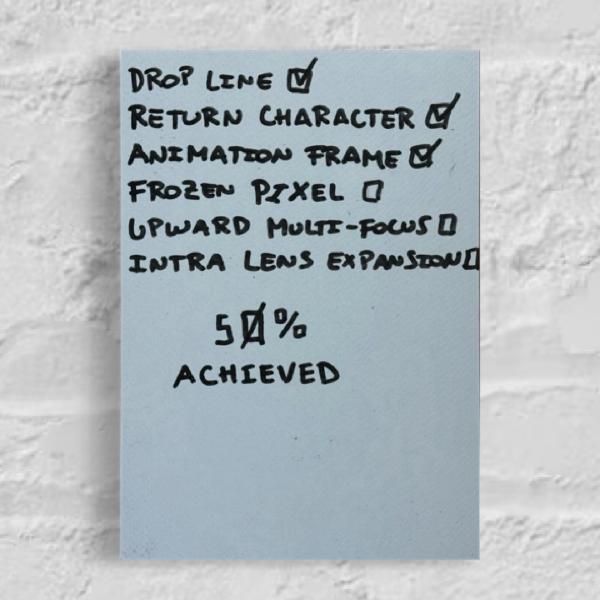 DROP LINE ☑
RETURN CHARACTER ☑
ANIMATION FRAME ☑
FROZEN PIXEL ☐
UPWARD MULTI-FOCUS ☐
INTRA LENS EXPANSION ☐
50%
ACHIEVED